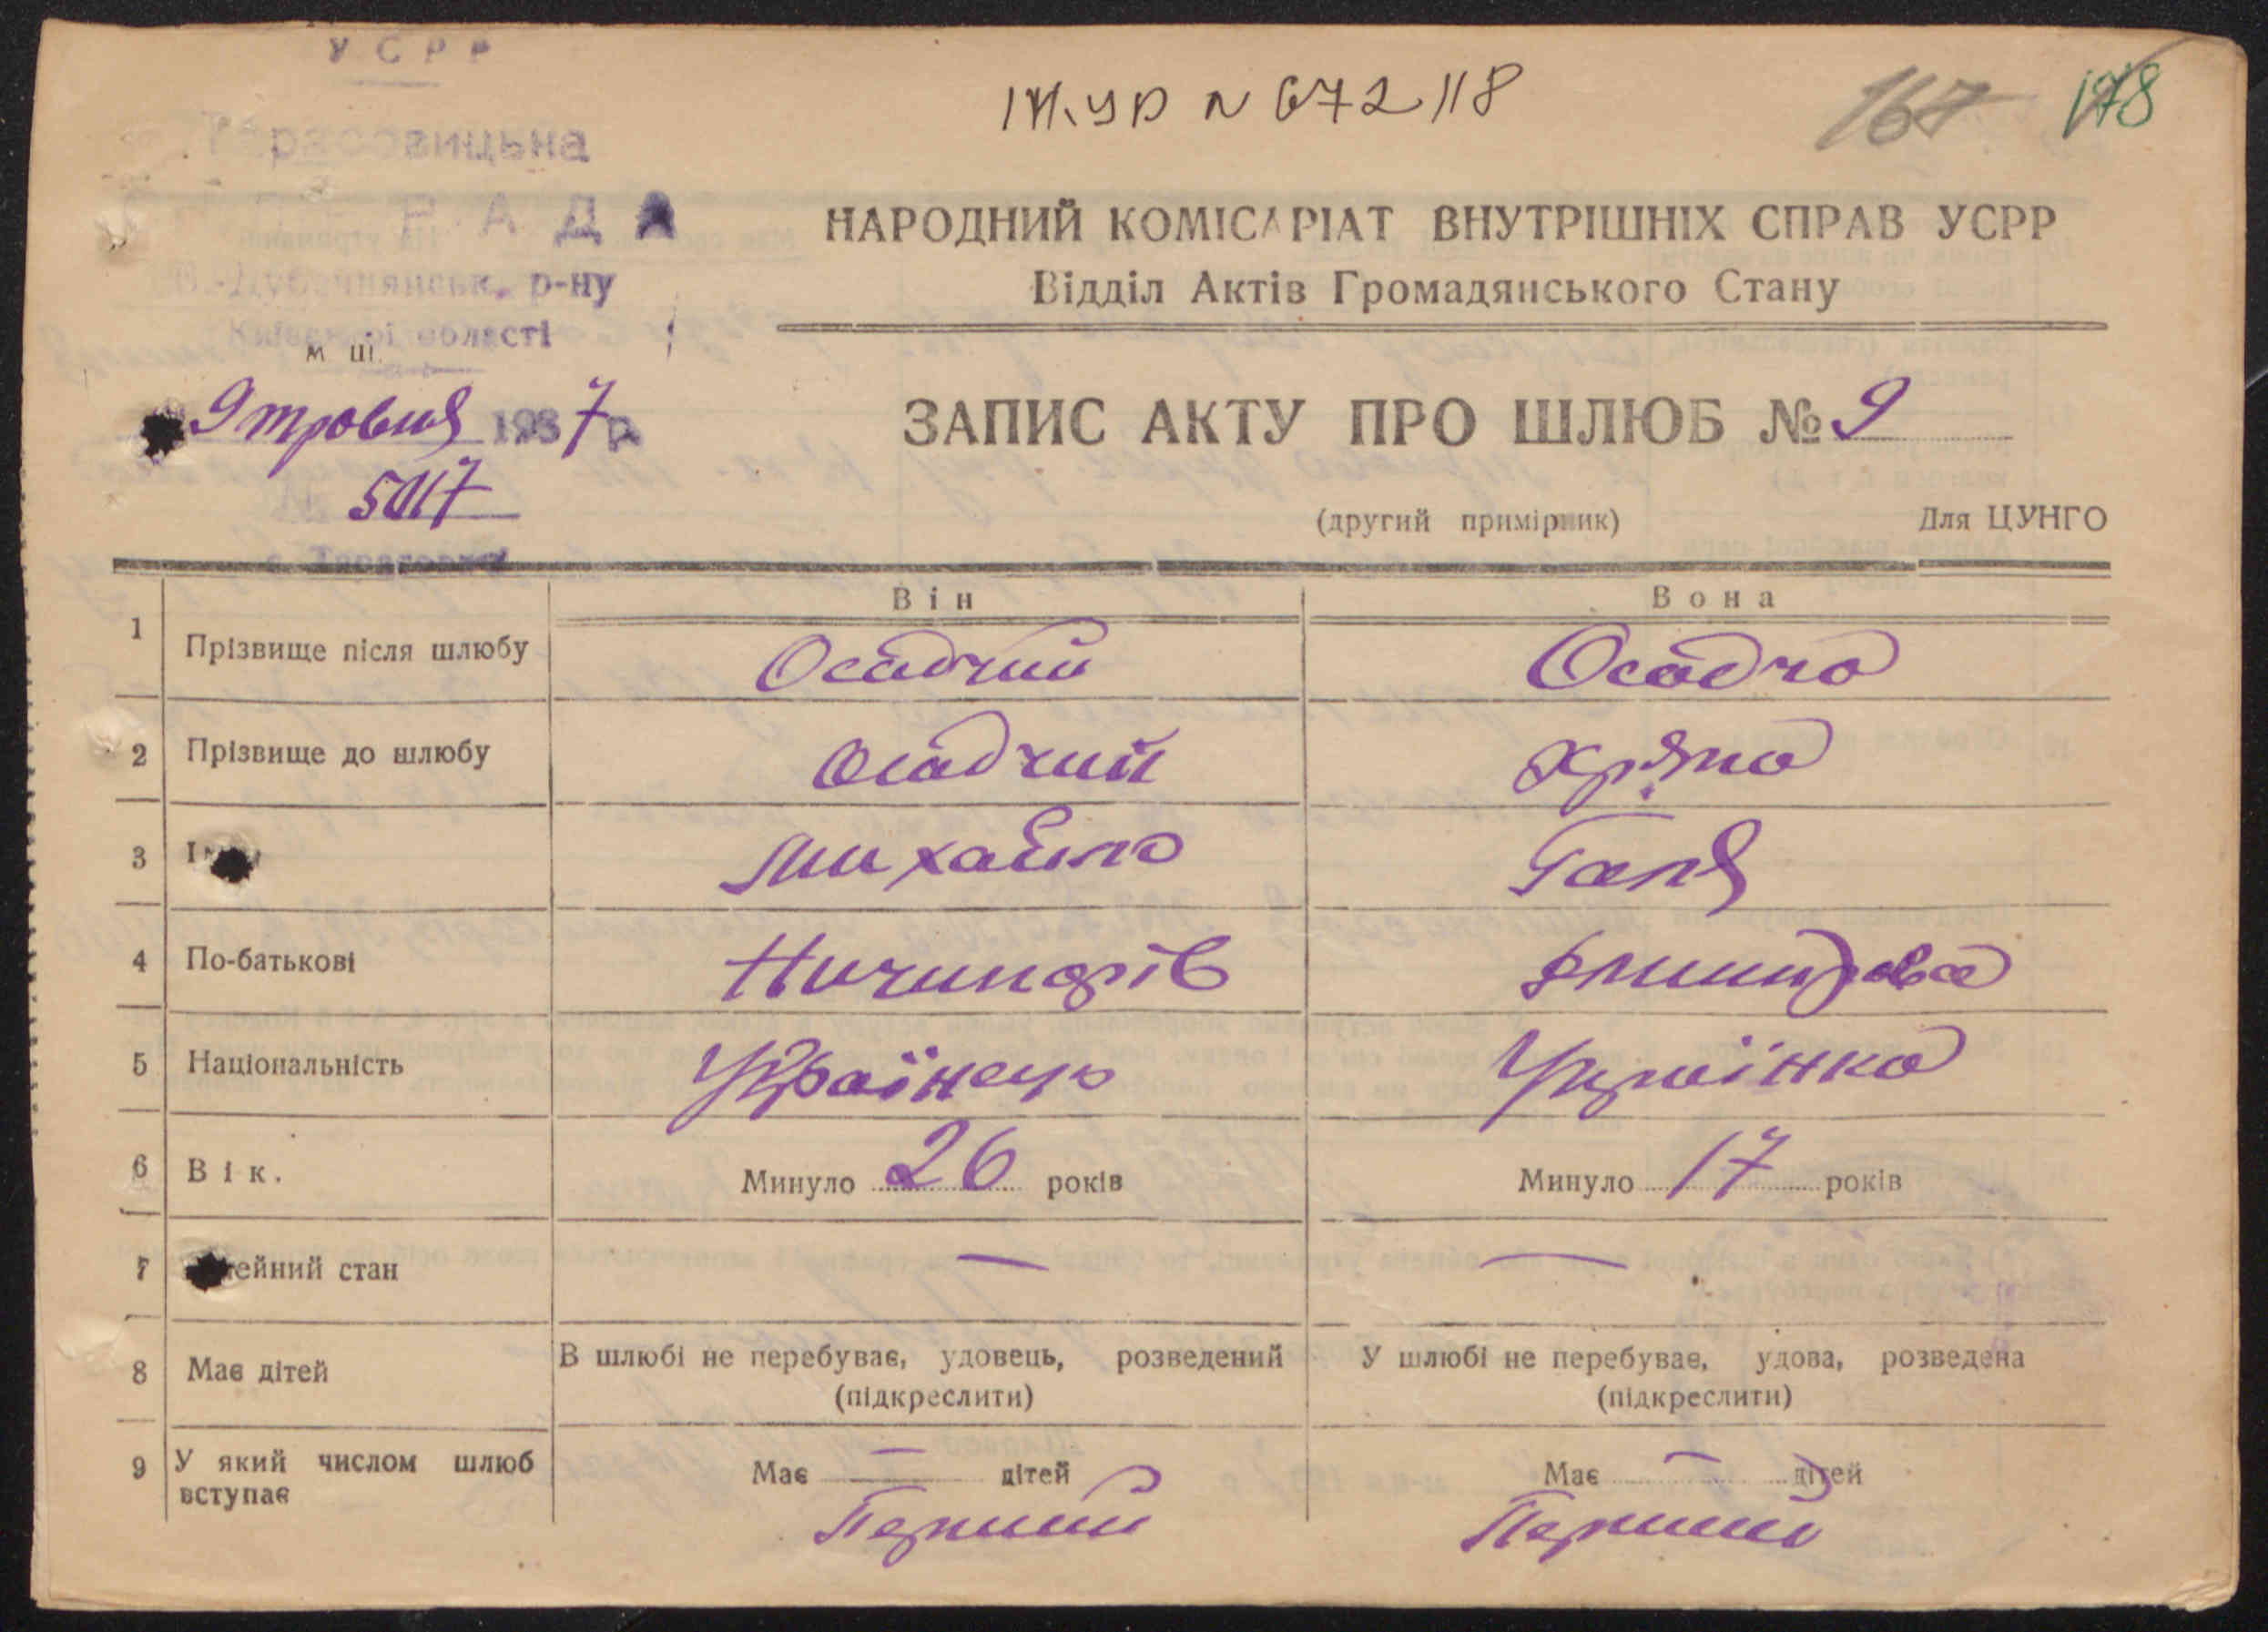 УСРР
ІМ.УР N 672 118
167 178
Тарасовицька
РАДА
В.-Дубечнянськ. р-ну
Київської області
НАРОДНИЙ КОМІСАРІАТ ВНУТРІШНІХ СПРАВ УСРР
Відділ Актів Громадянського Стану
м ш.
9 травня 1937 р.
ЗАПИС АКТУ ПРО ШЛЮБ № 9
(другий примірник) Для ЦУНГО
Він Вона
1 Прізвище після шлюбу Осадчий Осадча
2 Прізвище до шлюбу Осадчий Хряпа
3 Михайло Галя
4 По-батькові Ничипорів
5 Національність Українець Українка
6 Вік. Минуло 26 років Минуло 17 років
7 ейний стан — —
8 Має дітей В шлюбі не перебуває, удовець, розведений У шлюбі не перебуває, удова, розведена
(підкреслити) (підкреслити)
9 У який числом шлюб вступає Має — дітей Має — дітей
Перший Перший